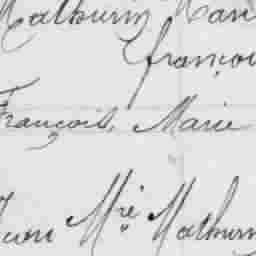 Mathurin Mari
françoi
François, Marie
Mre Mathurin